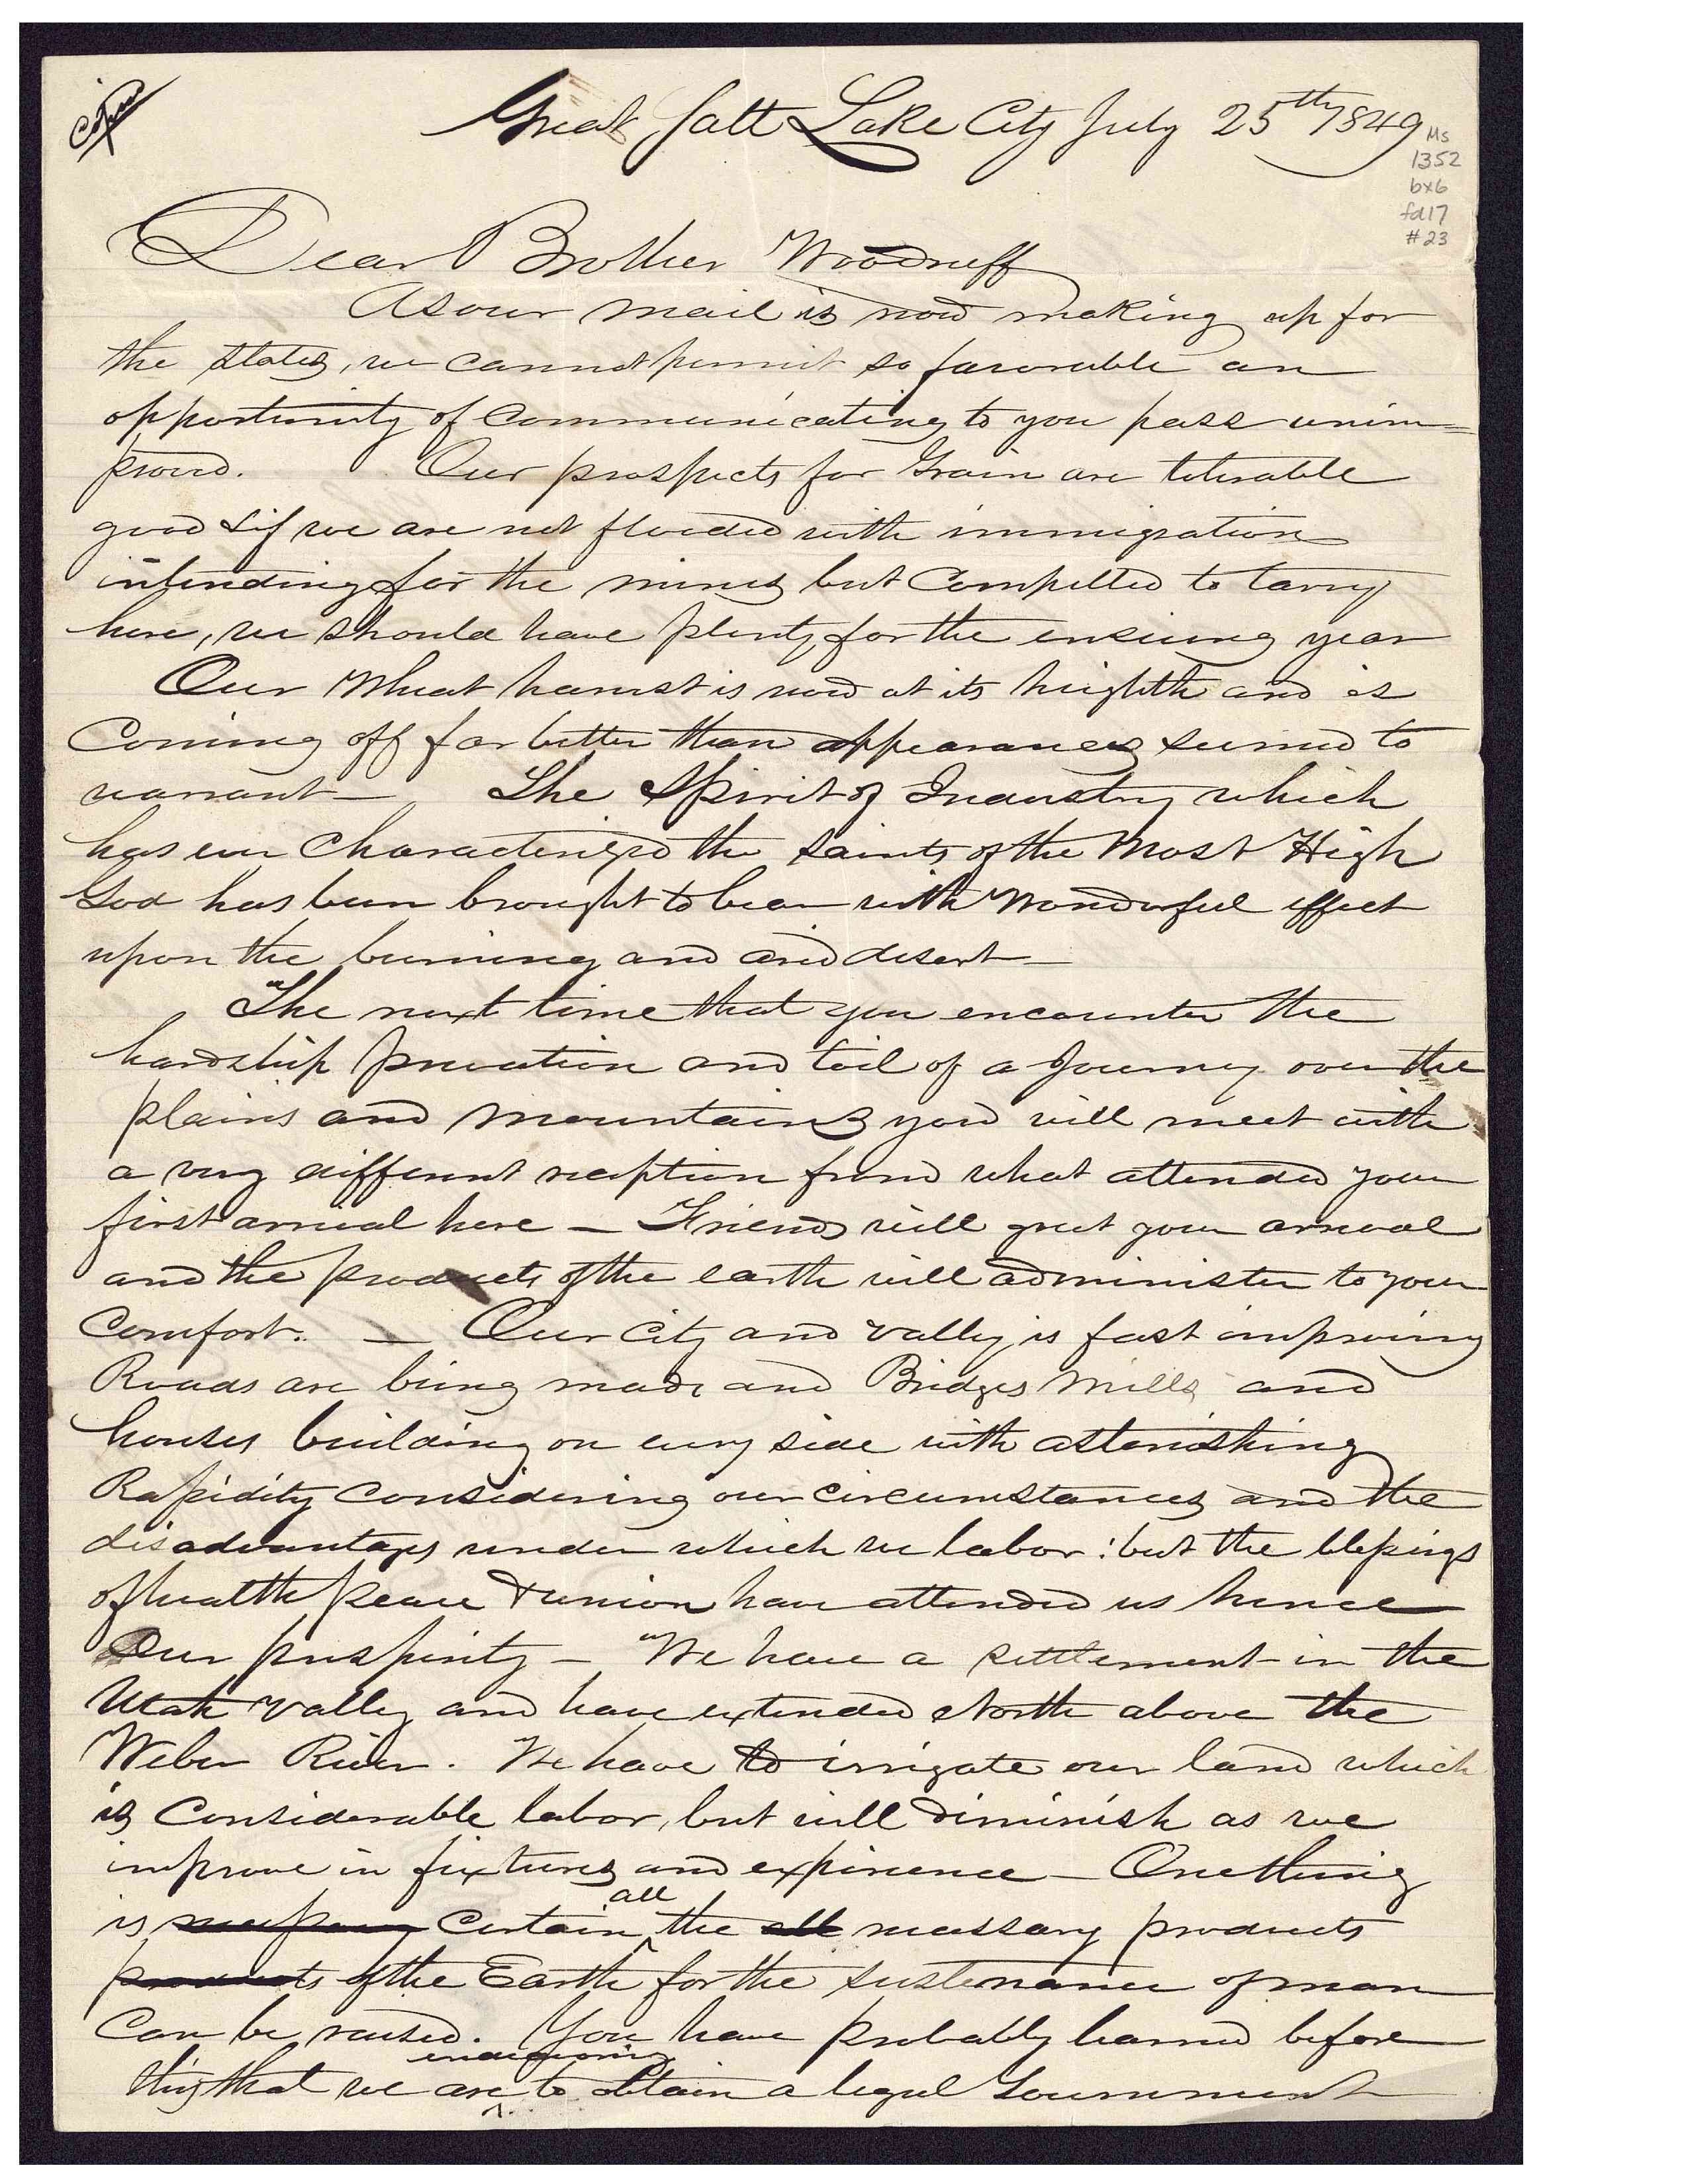 Copy
Great Salt Lake City July 25th 1849
Ms
1352
bx6
fd17
#23
Dear Brother Woodruff
As our mail is now making up for
the States, we cannot permit so favorable an
opportunity of communicating to you pass unim=
proved. Our prospects for Grain are tolerable
good & if we are not flooded with immigration
intending for the mines but Compelled to tarry
here, we should have plenty for the ensuing year
Our Wheat harvest is now at its heighth and is
Coming off far better than appearances seemed to
warrant— The Spirit of Industry which
has ever Characterized the Saints of the Most High
God has been brought to bear with Wonderful effect
upon the burning and arid desert—
The next time that you encounter the
hardship privation and toil of a Journey over the
plains and mountains you will meet with
a very different reception from what attended your
first arrival here — Friends will greet your arrival
and the products of the earth will administer to your
Comfort. — Our City and Valley is fast improving
Roads are being made and Bridges Mills and
houses building on every side with astonishing
Rapidity Considering our circumstances and the
disadvantages under which we labor: but the blessings
of health peace & union have attended us hence
Our prosperity — We have a settlement in the
Utah Valley and have extended North above the
Weber River. We have to irrigate our land which
is Considerable labor, but will diminish as we
improve in fixtures and experience — One thing
all
is Certain ^ the all necessary products
products of the Earth for the sustenance of man
Can be raised. You have probably learned before
endeavoring
this that we are ^ to obtain a legal Government